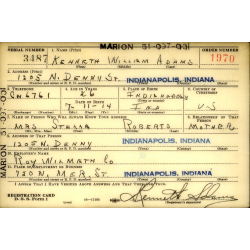 MARION 51-037-031
SERIAL NUMBER 1. NAME (Print) ORDER NUMBER
3487 KENNETH WILLIAM ADAMS 1970
(First) (Middle) (Last)
2. ADDRESS (Print)
1205 N. DENNY ST. INDIANAPOLIS, INDIANA
3. TELEPHONE 4. AGE IN YEARS 5. PLACE OF BIRTH 6. COUNTRY OF CITIZENSHIP
26
7-11-14 IND U-S
7. NAME OF PERSON WHO WILL ALWAYS KNOW YOUR ADDRESS 8. RELATIONSHIP OF THAT PERSON
MRS STELLA ROBERTS MOTHER
9. ADDRESS OF THAT PERSON
1205 N. DENNY INDIANAPOLIS, INDIANA
10. EMPLOYER'S NAME
ROY WILMATH CO
11. PLACE OF EMPLOYMENT OR BUSINESS
N. MER. ST. INDIANAPOLIS, INDIANA
I AFFIRM THAT I HAVE VERIFIED ABOVE ANSWERS AND THAT THEY ARE TRUE.
REGISTRATION CARD
D. S. S. Form 1